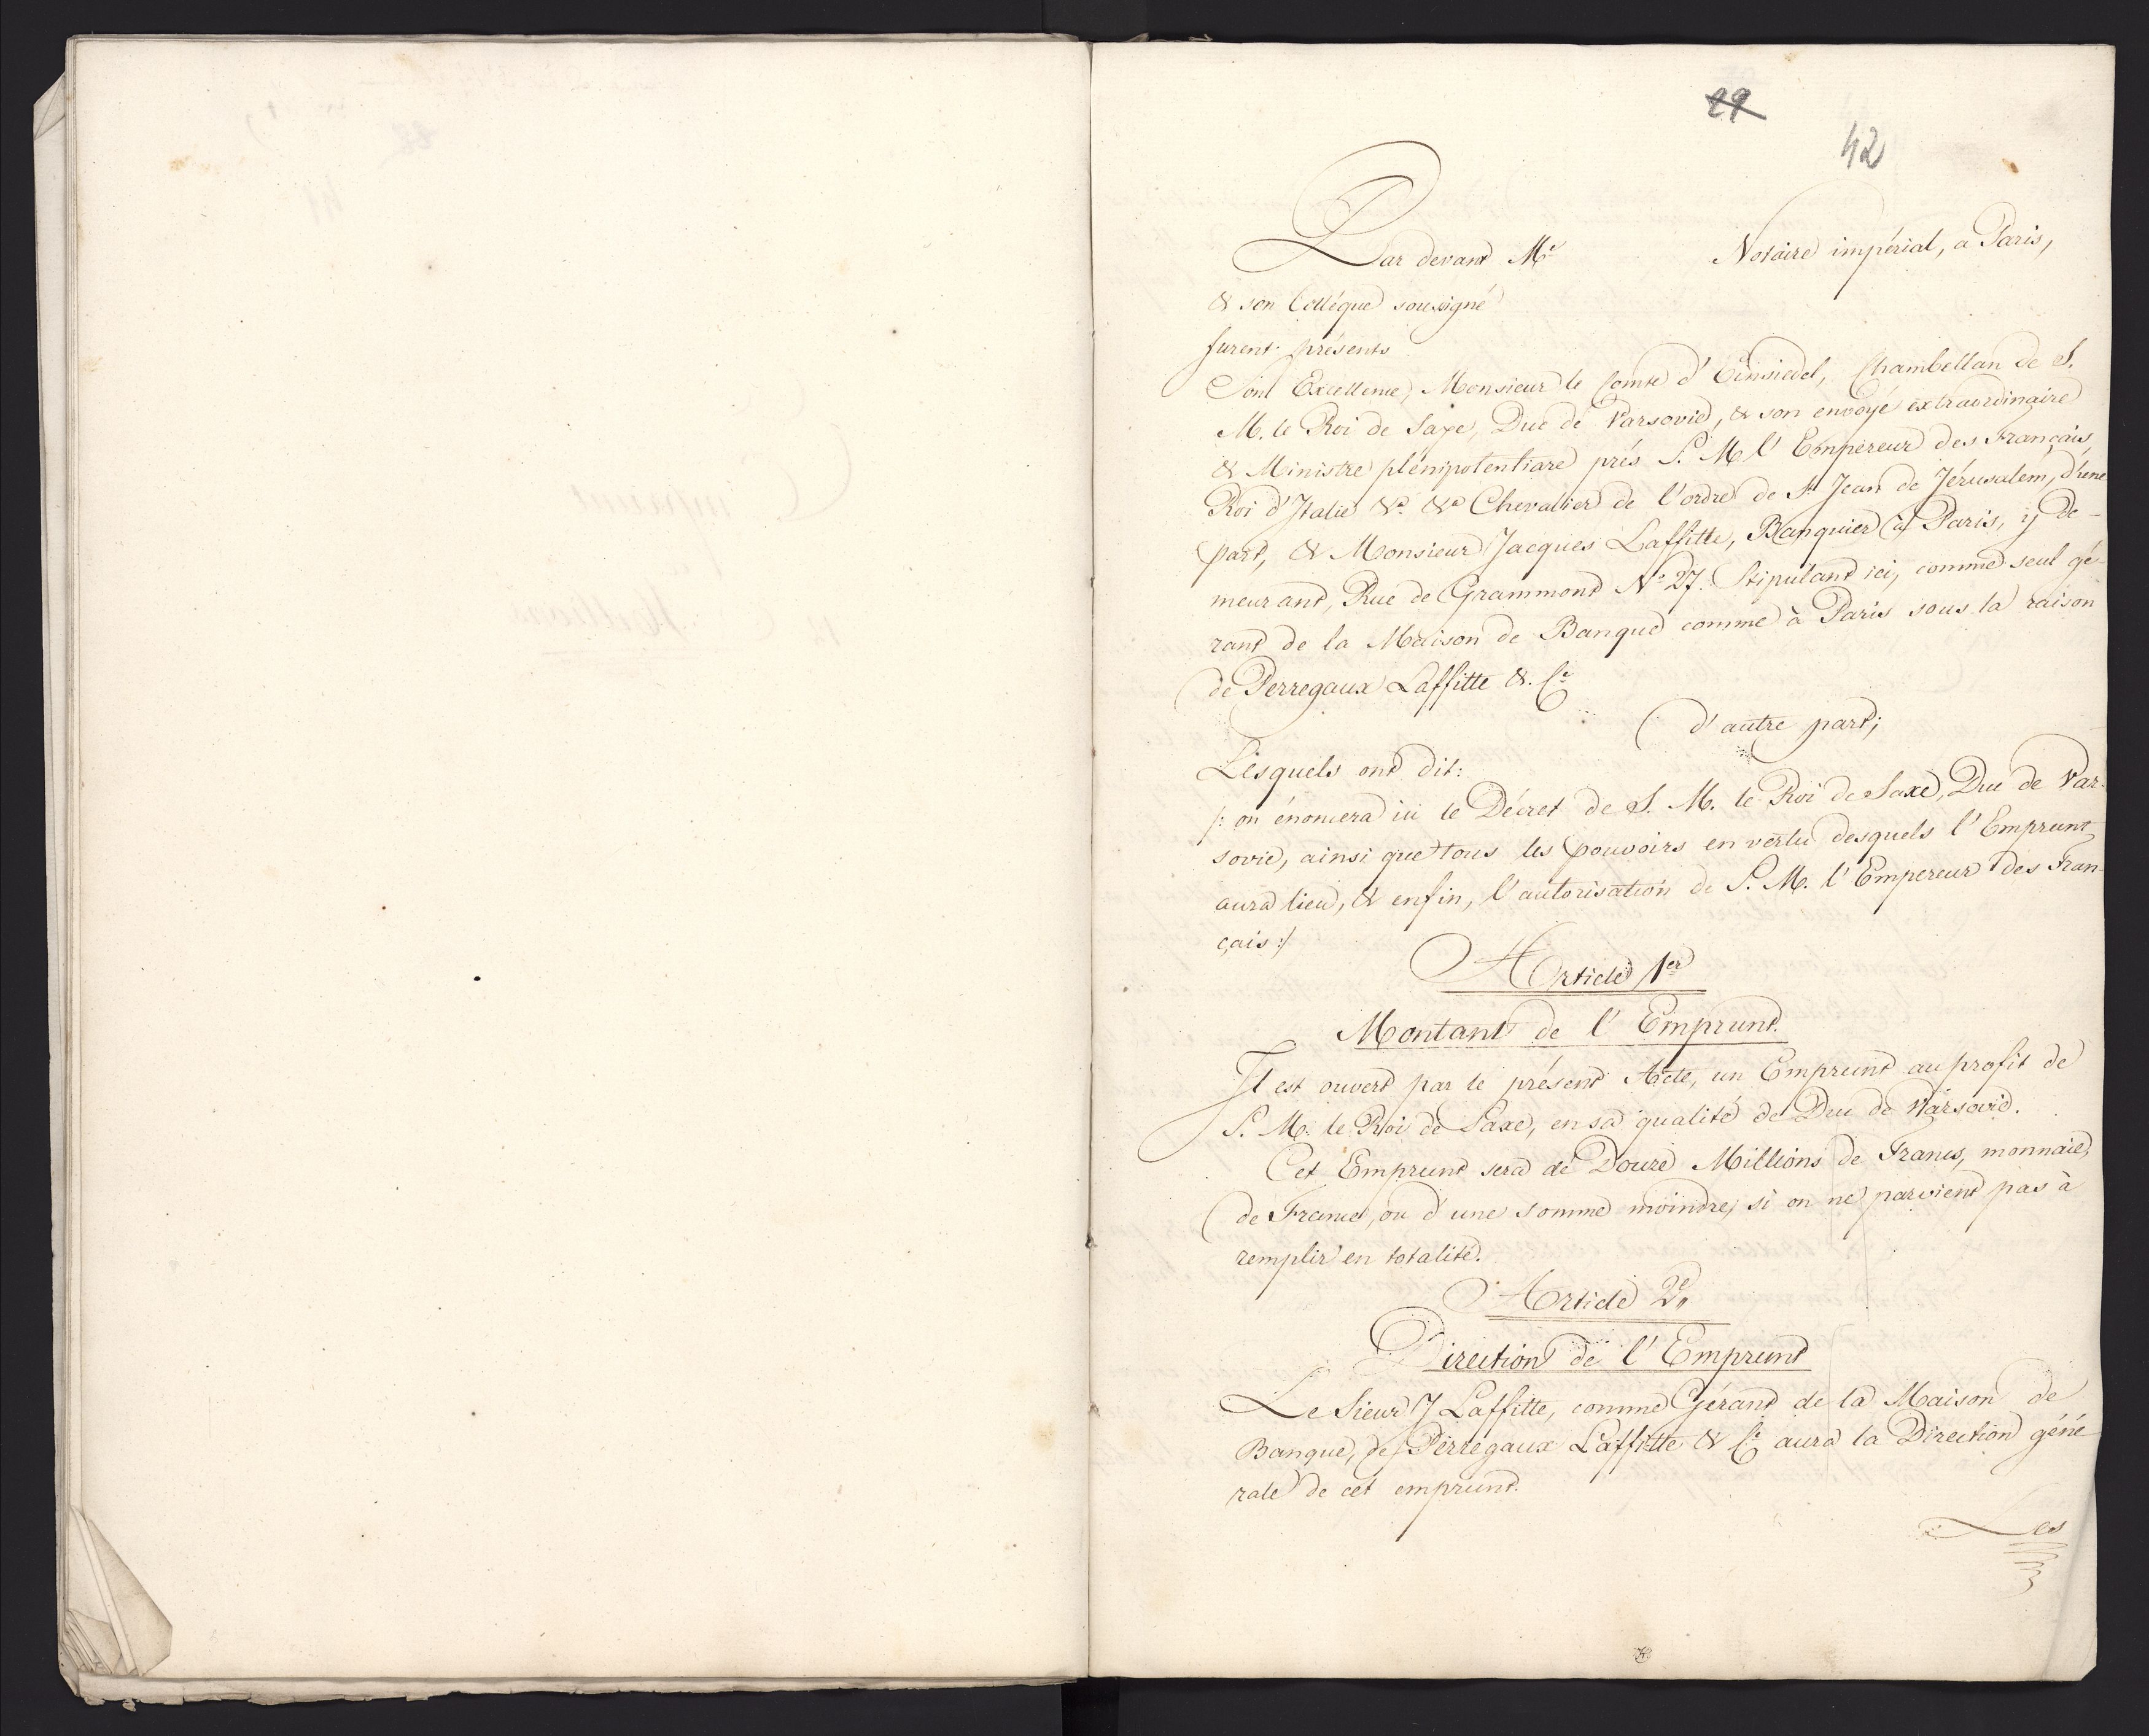 29
42
Par devant Me Notaire impérial, a Paris,
& son Collégue sousigné
furent présents
Son Excellence, Monsieur le Comte d'Einsiedel, Chambellan de S.
M. le Roi de Saxe, Duc de Varsovie, & son envoyé extraordinaire
& Ministre plénipotentiare prés S. M. l'Empereur des Français,
Roi d'Italie &c. &c. Chevalier de l'ordre de St Jean de Jérusalem, d'une
part, & Monsieur Jacques Laffitte, Banquier à Paris, y de-
meurant, Rue de Grammont No 27. Stipulant ici, comme seul gé-
rant de la Maison de Banque comme à Paris sous la raison
de Perregaux Laffitte &. Ce
d'autre part;
Lesquels ont dit:
/: on énoncera ici le Décret de S. M. le Roi de Saxe, Duc de Var-
sovie, ainsi que tous les pouvoirs en vertu desquels l'Emprunt
aura lieu, & enfin, l'autorisation de S. M. l'Empereur des Fran-
çais :/
Article 1er
Montant de l'Emprunt.
Il est ouvert par le présent Acte, un Emprunt au profit de
S. M. le Roi de Saxe, en sa qualité de Duc de Varsovie.
Cet Emprunt sera de Douze Millions de Francs, monnaie
de France, ou d'une somme moindre, si on ne parvient pas à
remplir en totalité.
Article 2e
Direction de l'Emprunt
Le Sieur J Laffitte, comme Gérant de la Maison de
Banque, de Perregaux Laffitte & Ce aura la Direction géné
rale de cet emprunt.
Les